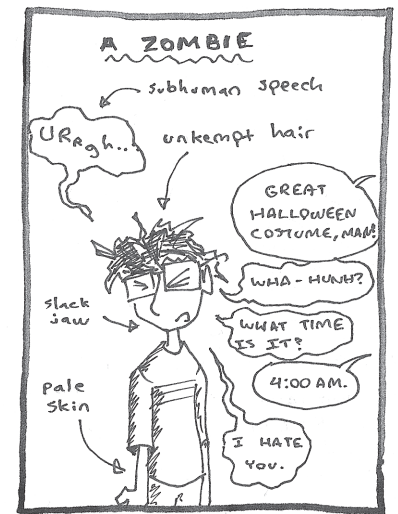 A ZOMBIE
subhuman speech
URRgh..
unkempt hair
GREAT
HALLOWEEN
COSTUME, MAN!
WHA-HUNH?
slack
jaw
WHAT TIME
IS IT?
4:00 AM.
pale
skin
I HATE
YOU.